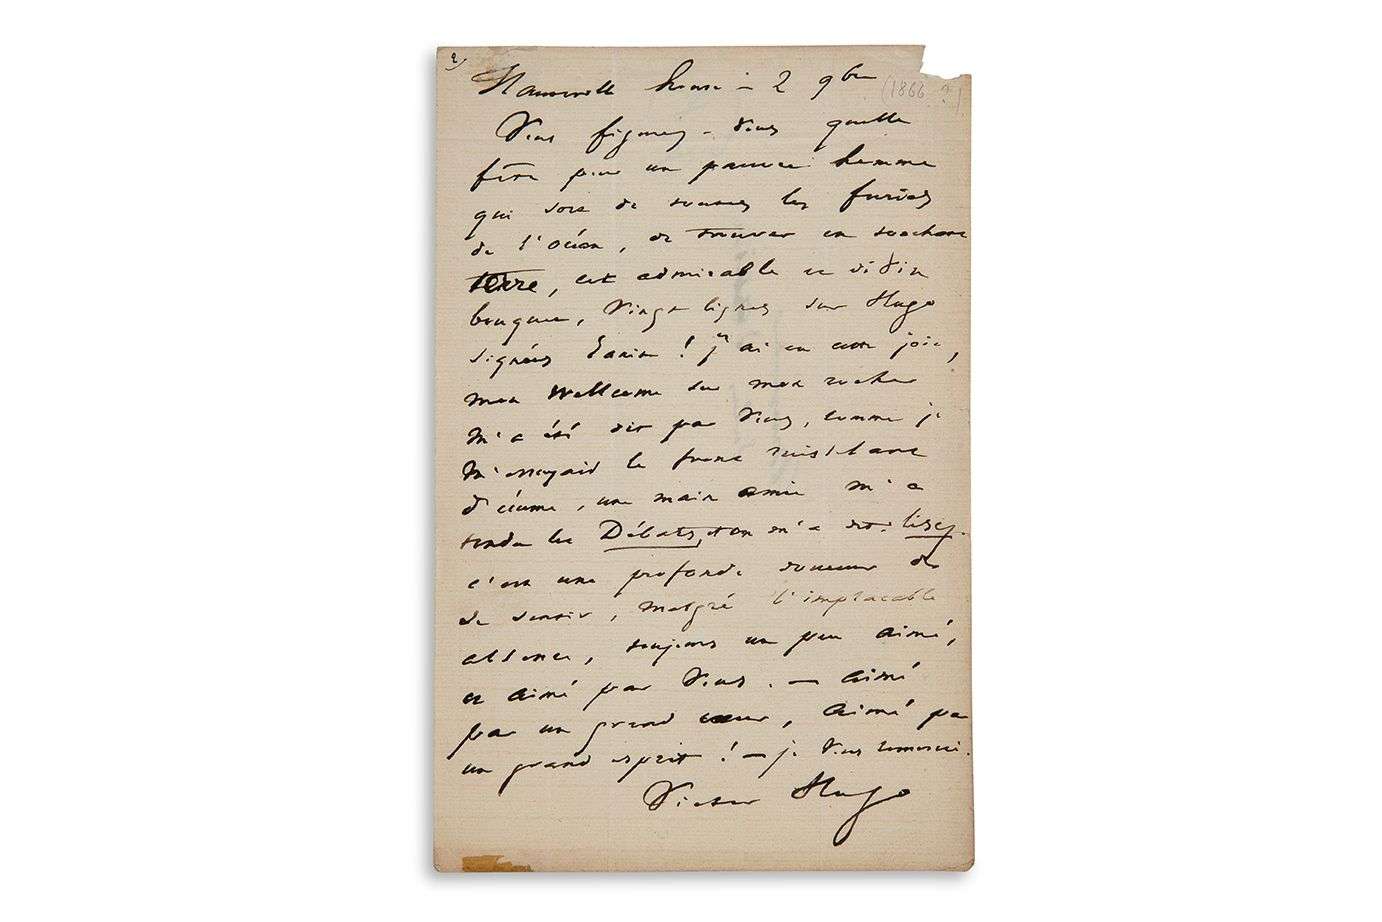 2)
Hauteville house – 2 9bre
(1866 ?)
Vous figurez-vous quelle
fête pour un pauvre homme
qui sort de toutes les furies
de l'océan, de trouver en touchant
terre, cet admirable et divin
bouquet, vingt lignes sur Hugo
signées Janin ! j'ai eu cette joie,
mon wellcome sur mon rocher
m'a été dit par vous, comme je
m'essuyais le front ruisselant
d'écume, une main amie m'a
tendu les Débats, et on m'a dit: lisez.
c'est une profonde douceur de
se sentir, malgré l'implacable
absence, toujours un peu aimé,
et aimé par vous. – aimé
par un grand cœur, aimé par
un grand esprit ! – je vous remercie.
Victor Hugo